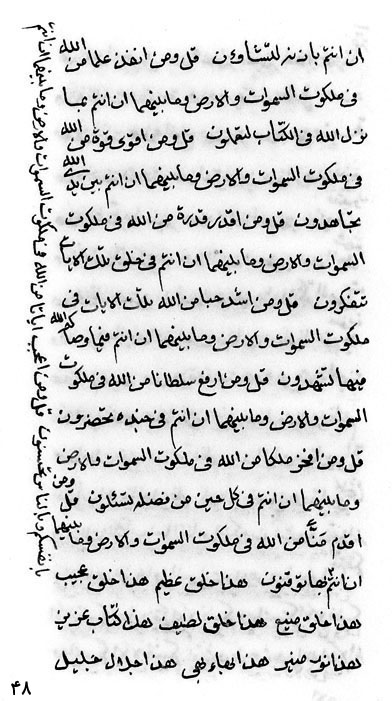 ان انتم باذنه لتشاؤن قل ومن انفذ علما من الله
فى ملكوت السموات والارض وما بينهما ان انتم بما
نزل الله فى الكتاب لتعلمون قل ومن اقوى قوة من الله
فى ملكوت السموات والارض وما بينهما ان انتم بين يدى الله
تجاهدون قل ومن اقدر قدرة من الله فى ملكوت
السموات والارض وما بينهما ان انتم فى خلق تلك الايات
تتفكرون قل ومن اشد حبا من الله بتلك الايات فى
ملكوت السموات والارض وما بينهما ان انتم فيما وصاكم الله
فيها لتشهدون قل ومن ارفع سلطانا من الله فى ملكوت
السموات والارض وما بينهما ان انتم فى جنده تحضرون
قل ومن افخر ملكا من الله فى ملكوت السموات والارض
وما بينهما ان انتم فى كل حين من فضله لتسئلون قل ومن
اقدم منا من الله فى ملكوت السموات والارض وما بينهما
ان انتم بها توقنون هذا خلق عظيم هذا خلق عجيب
هذا خلق منيع هذا خلق لطيف هذا كتاب عزيز
هذا نور منير هذا بهاء بهى هذا جلال جليل
قل ومن اعجب اياتا من الله فى ملكوت السموات والارض وما بينهما ان انتم
بانفسكم
۴۸